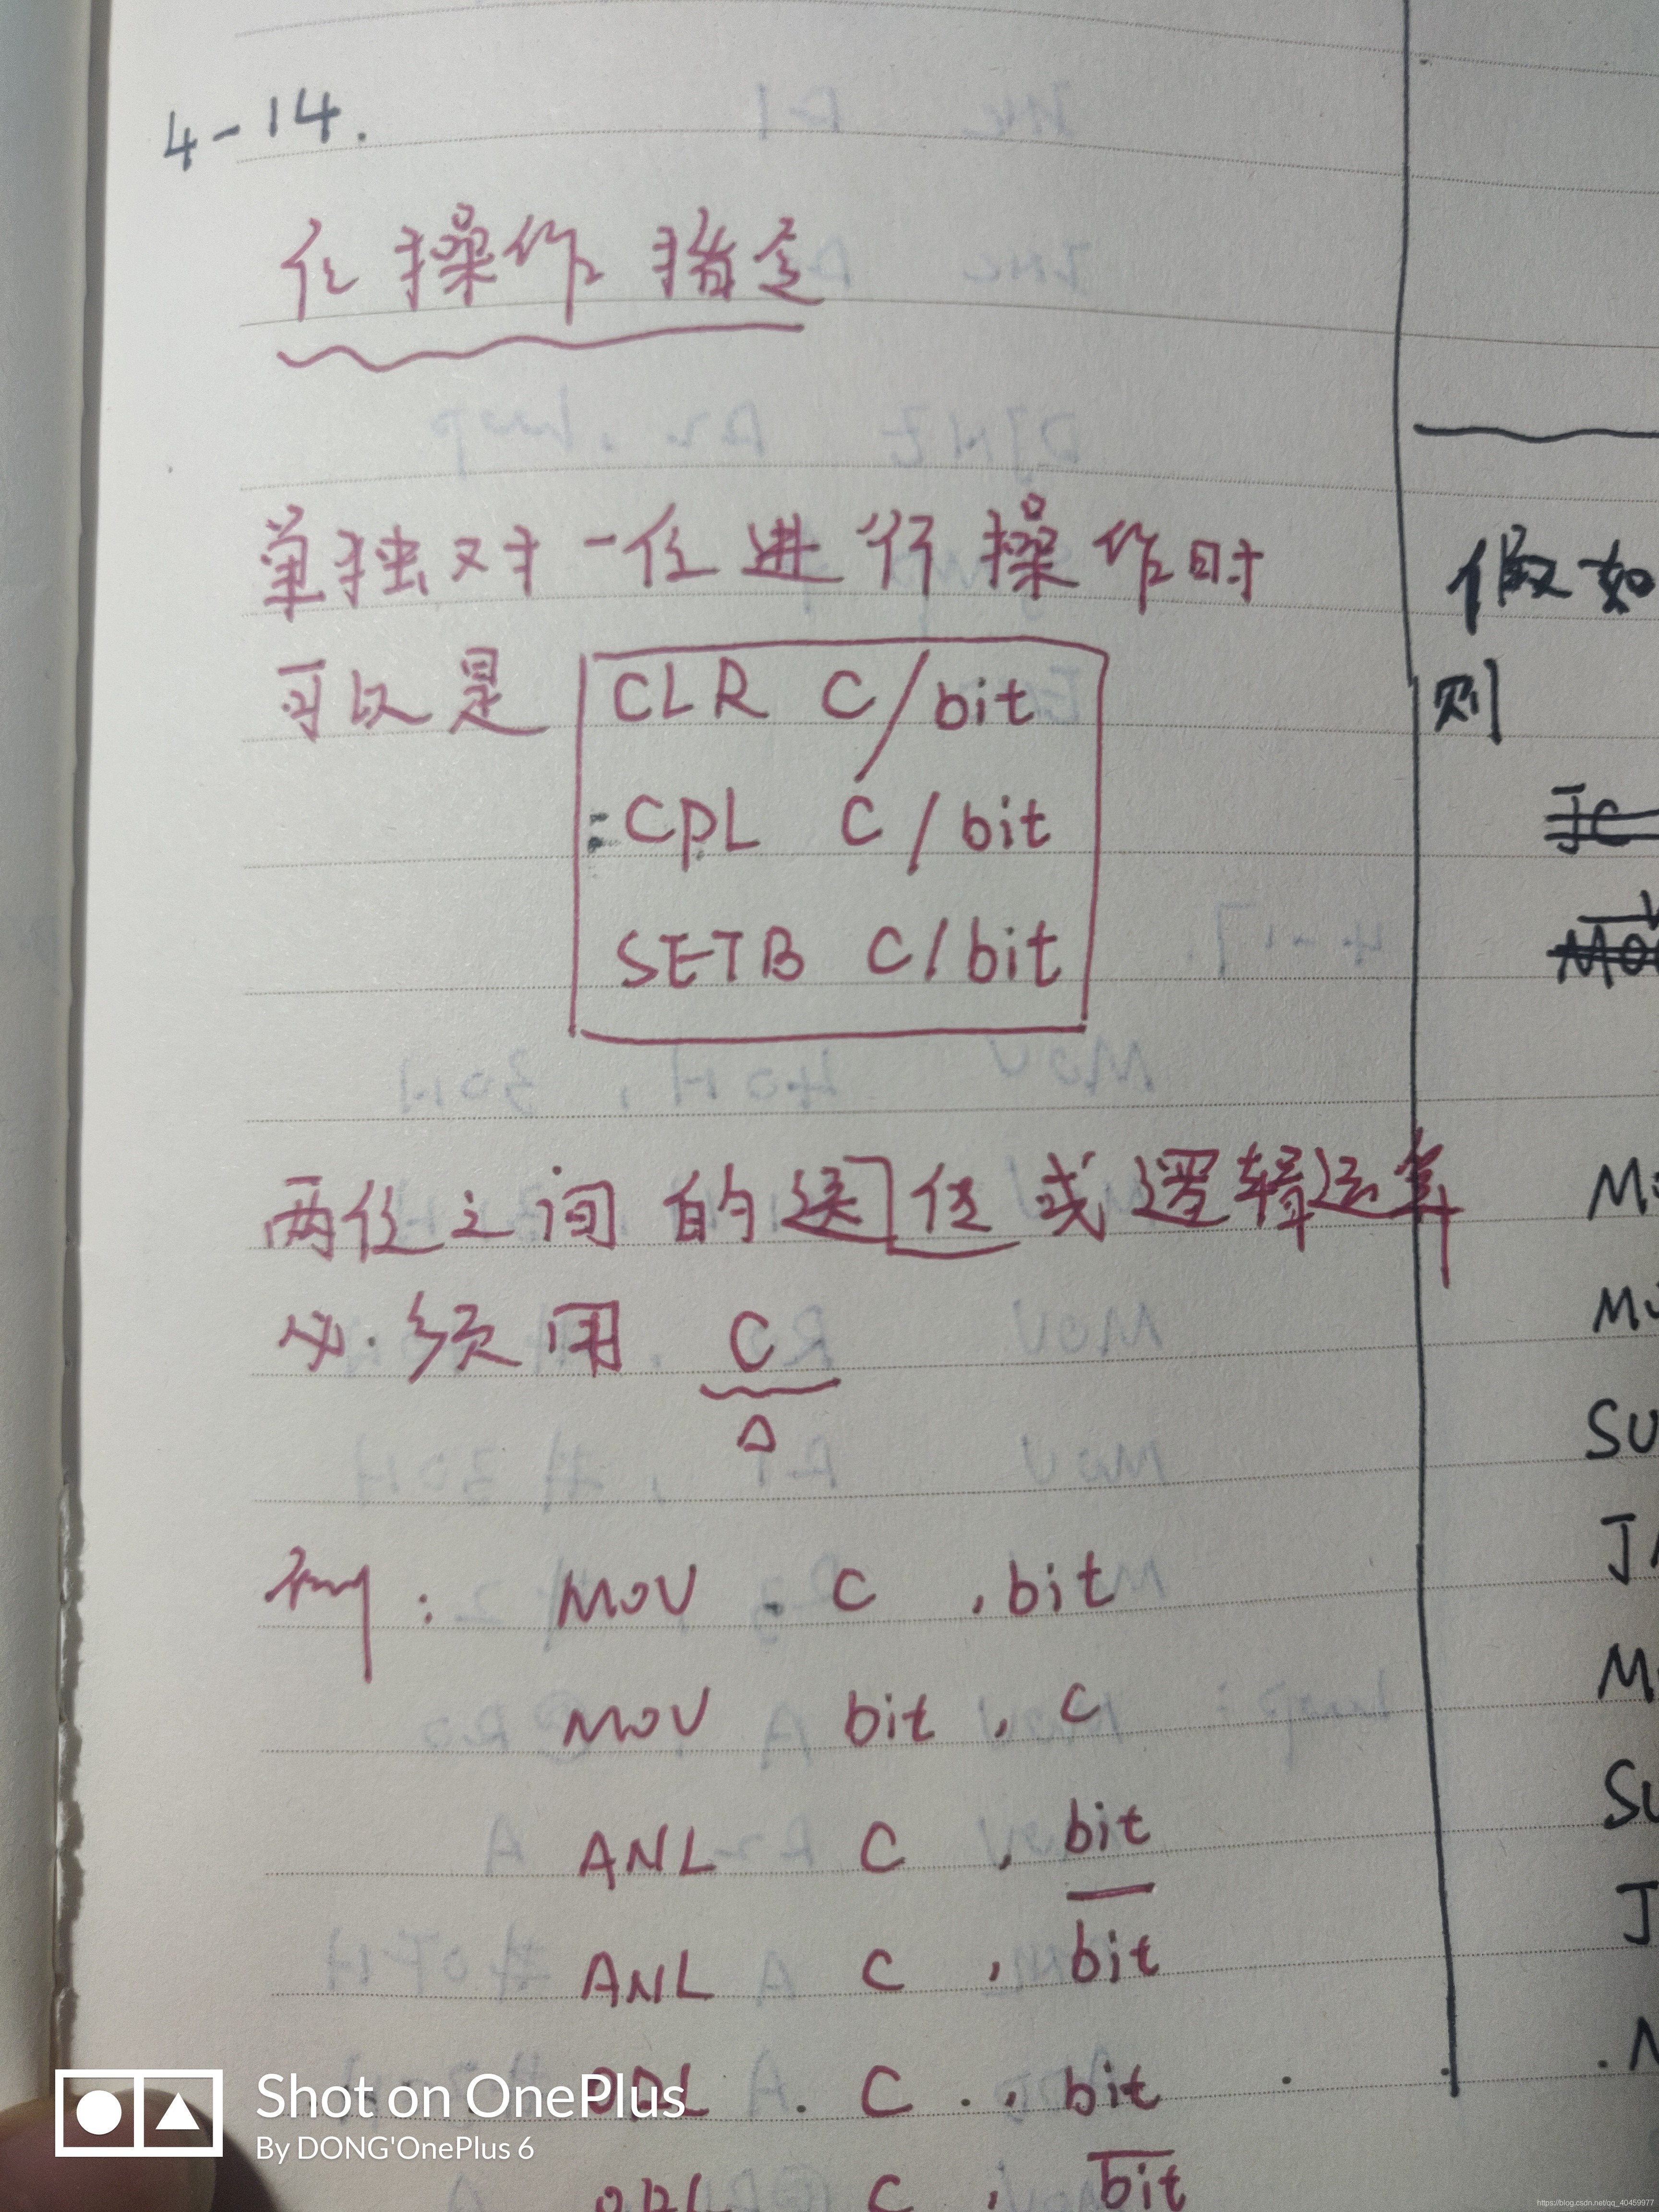 4-14.
位操作指令
单独对一位进行操作时
可以是 CLR C/bit
CPL C/bit
SETB C/bit
两位之间的送位或逻辑运算
必须用 C
例: MOV C ,bit
MOV bit , C
ANL C , bit
ANL C , b̅i̅t̅
ORL C , bit
ORL C , b̅i̅t̅
假如
则
JC
MOV
SU
J
SU
J
Shot on OnePlus
By DONG'OnePlus 6
https://blog.csdn.net/qq_40459977